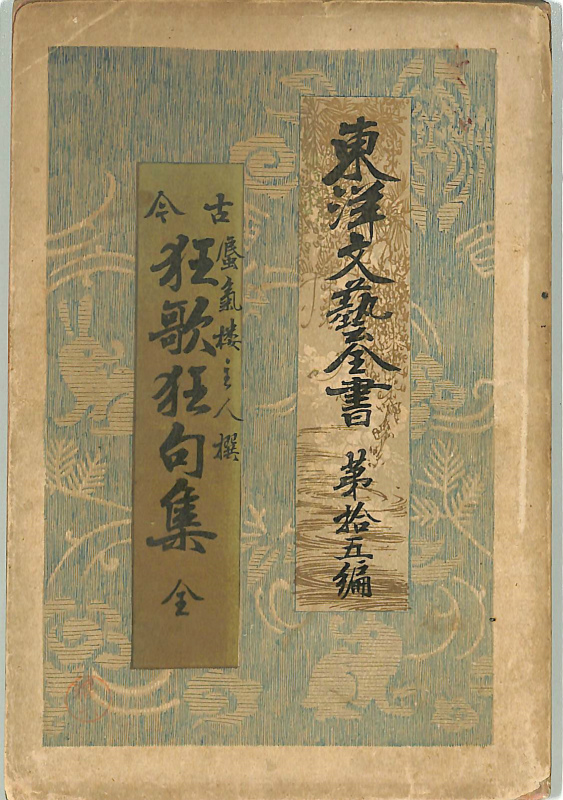 東洋文藝全書 第拾五編
古今
蜃氣楼主人撰
狂歌狂句集 全